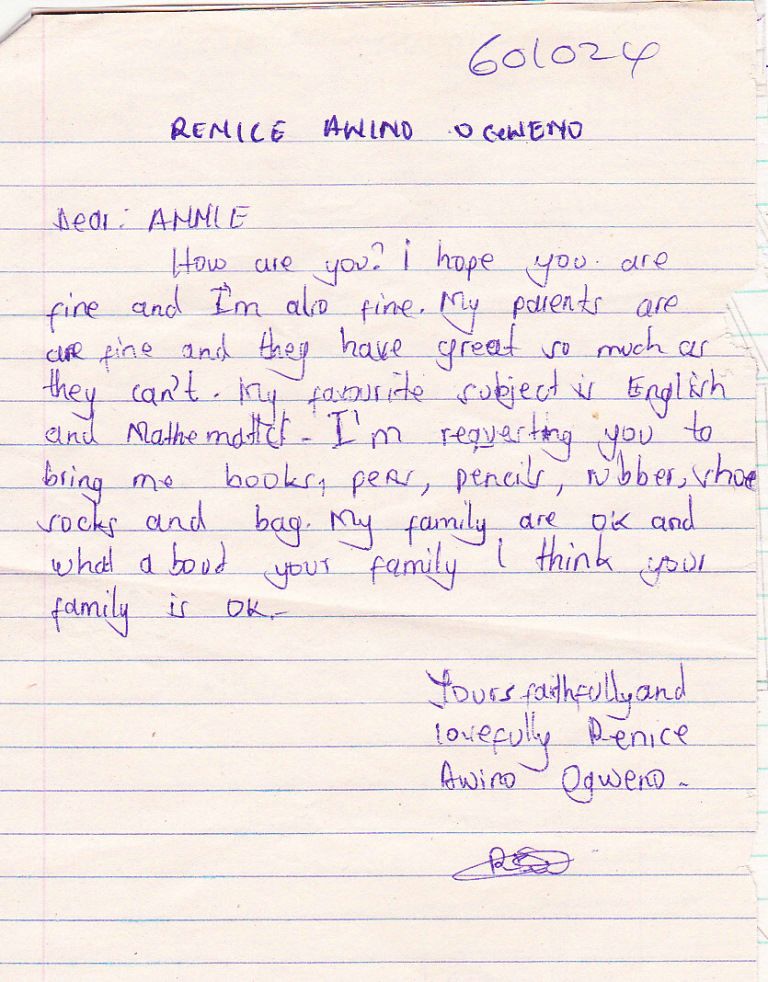 601024
RENICE AWINO OGWENO
Dear: ANNIE
How are you? I hope you are
fine and I'm also fine. My parents are
are fine and they have great so much as
they can't. My favourite subject is English
and Mathematics. I'm requesting you to
bring me books, pens, pencils, rubber, shoe
socks and bag. My family are OK and
what a boud your family I think your
family is OK.-
Yours faithfully and
lovefully Renice
Awino Ogweno-